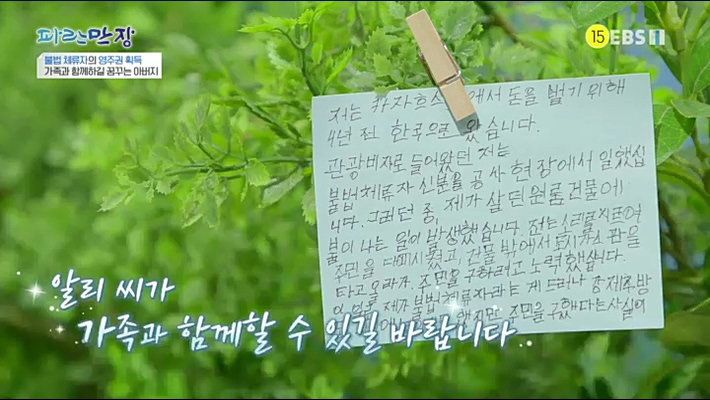 파란만장
15 EBS1
불법 체류자의 영주권 획득
가족과 함께하길 꿈꾸는 아버지
저는 에서 돈을 벌기 위해
4년 전 한국으로 왔습니다.
관광비자로 들어왔던 저는
불법체류자 신분을 공사 현장에서 일했십
니다. 그러던 중, 제가 살던 원룸 건물에
불이 나는 일이 발생했습니다. 저는 소리를
주민을 건물 밖에서 도시가스 관을
타고 올라가, 주민을 구하려고 노력했습니다.
제가 불법체류자라는 게
주민을 구했다는 사실에
알리 씨가
가족과 함께할 수 있길 바랍니다